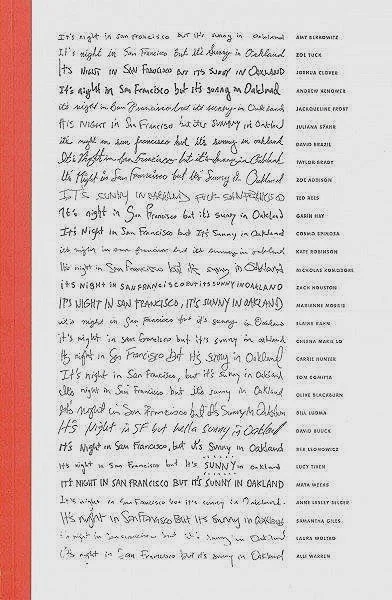 It's night in San Francisco but it's sunny in Oakland AMY BERKOWITZ
It's night in San Francisco but it's Sunny in Oakland ZOE TUCK
It's NIGHT IN SAN FRANCISCO BUT ITS SUNNY IN OAKLAND JOSHUA CLOVER
It's night in San Francisco but it's sunny in Oakland ANDREW KENOWER
its night in San Francisco but its sunny in Oakland JACQUELINE FROST
It IS NIGHT in San Francisco but it's SUNNY in Oakland JULIANA SPAHR
it's night in san francisco but it's sunny in oakland DAVID BRAZIL
It's Night in San Francisco but it's Sunny in Oakland TAYLOR BRADY
It's Night in San Francisco but It's Sunny in The Oakland ZOE ADDISON
IT'S SUNNY IN OAKLAND SAN FRANCISCO TED REES
It's night in San Francisco but it's sunny in Oakland GARIN HAY
It's Night in San Francisco but It's Sunny in Oakland COSMO SPINOSA
its night in san francisco but its sunny in oakland KATE ROBINSON
It's night in San Francisco but it's sunny in Oakland NICHOLAS KOMODORE
itS NIGHT IN SAN FRANCISCO BUT ITS SUNNY IN OAKLAND ZACK HOUSTON
IT'S NIGHT IN SAN FRANCISCO, IT'S SUNNY IN OAKLAND MARIANNE MORRIS
it's night in san francisco but it's sunny in Oakland ELAINE KAHN
it's night in san francisco but it's sunny in Oakland CHEENA MARIE LO
It's night in San Francisco but it's sunny in Oakland CARRIE HUNTER
It's night in San Francisco, but it's sunny in Oakland TOM COMITTA
It's night in San Francisco but it's sunny in Oakland OLIVE BLACKBURN
It's night in San Francisco but it's Sunny in Oakland BILL LUOMA
It's Night in SF but hella sunny in Oakland DAVID BUUCK
It's Night in San Francisco, but it's Sunny in Oakland
It's night in San Francisco but It's SUNNY in oakland LUCY TIVEN
IT'S NIGHT IN SAN FRANCISCO BUT IT'S SUNNY IN OAKLAND MAYA WEEKS
It's night in San Francisco but it's sunny in Oakland. ANNE LESLEY SELCER
It's night in San Francisco But It's Sunny in Oakland SAMANTHA GILES
it's night in san francisco but it's sunny in Oakland LAURA WOLTAG
it's night in San Francisco but it's sunny in Oakland ALLI WARREN